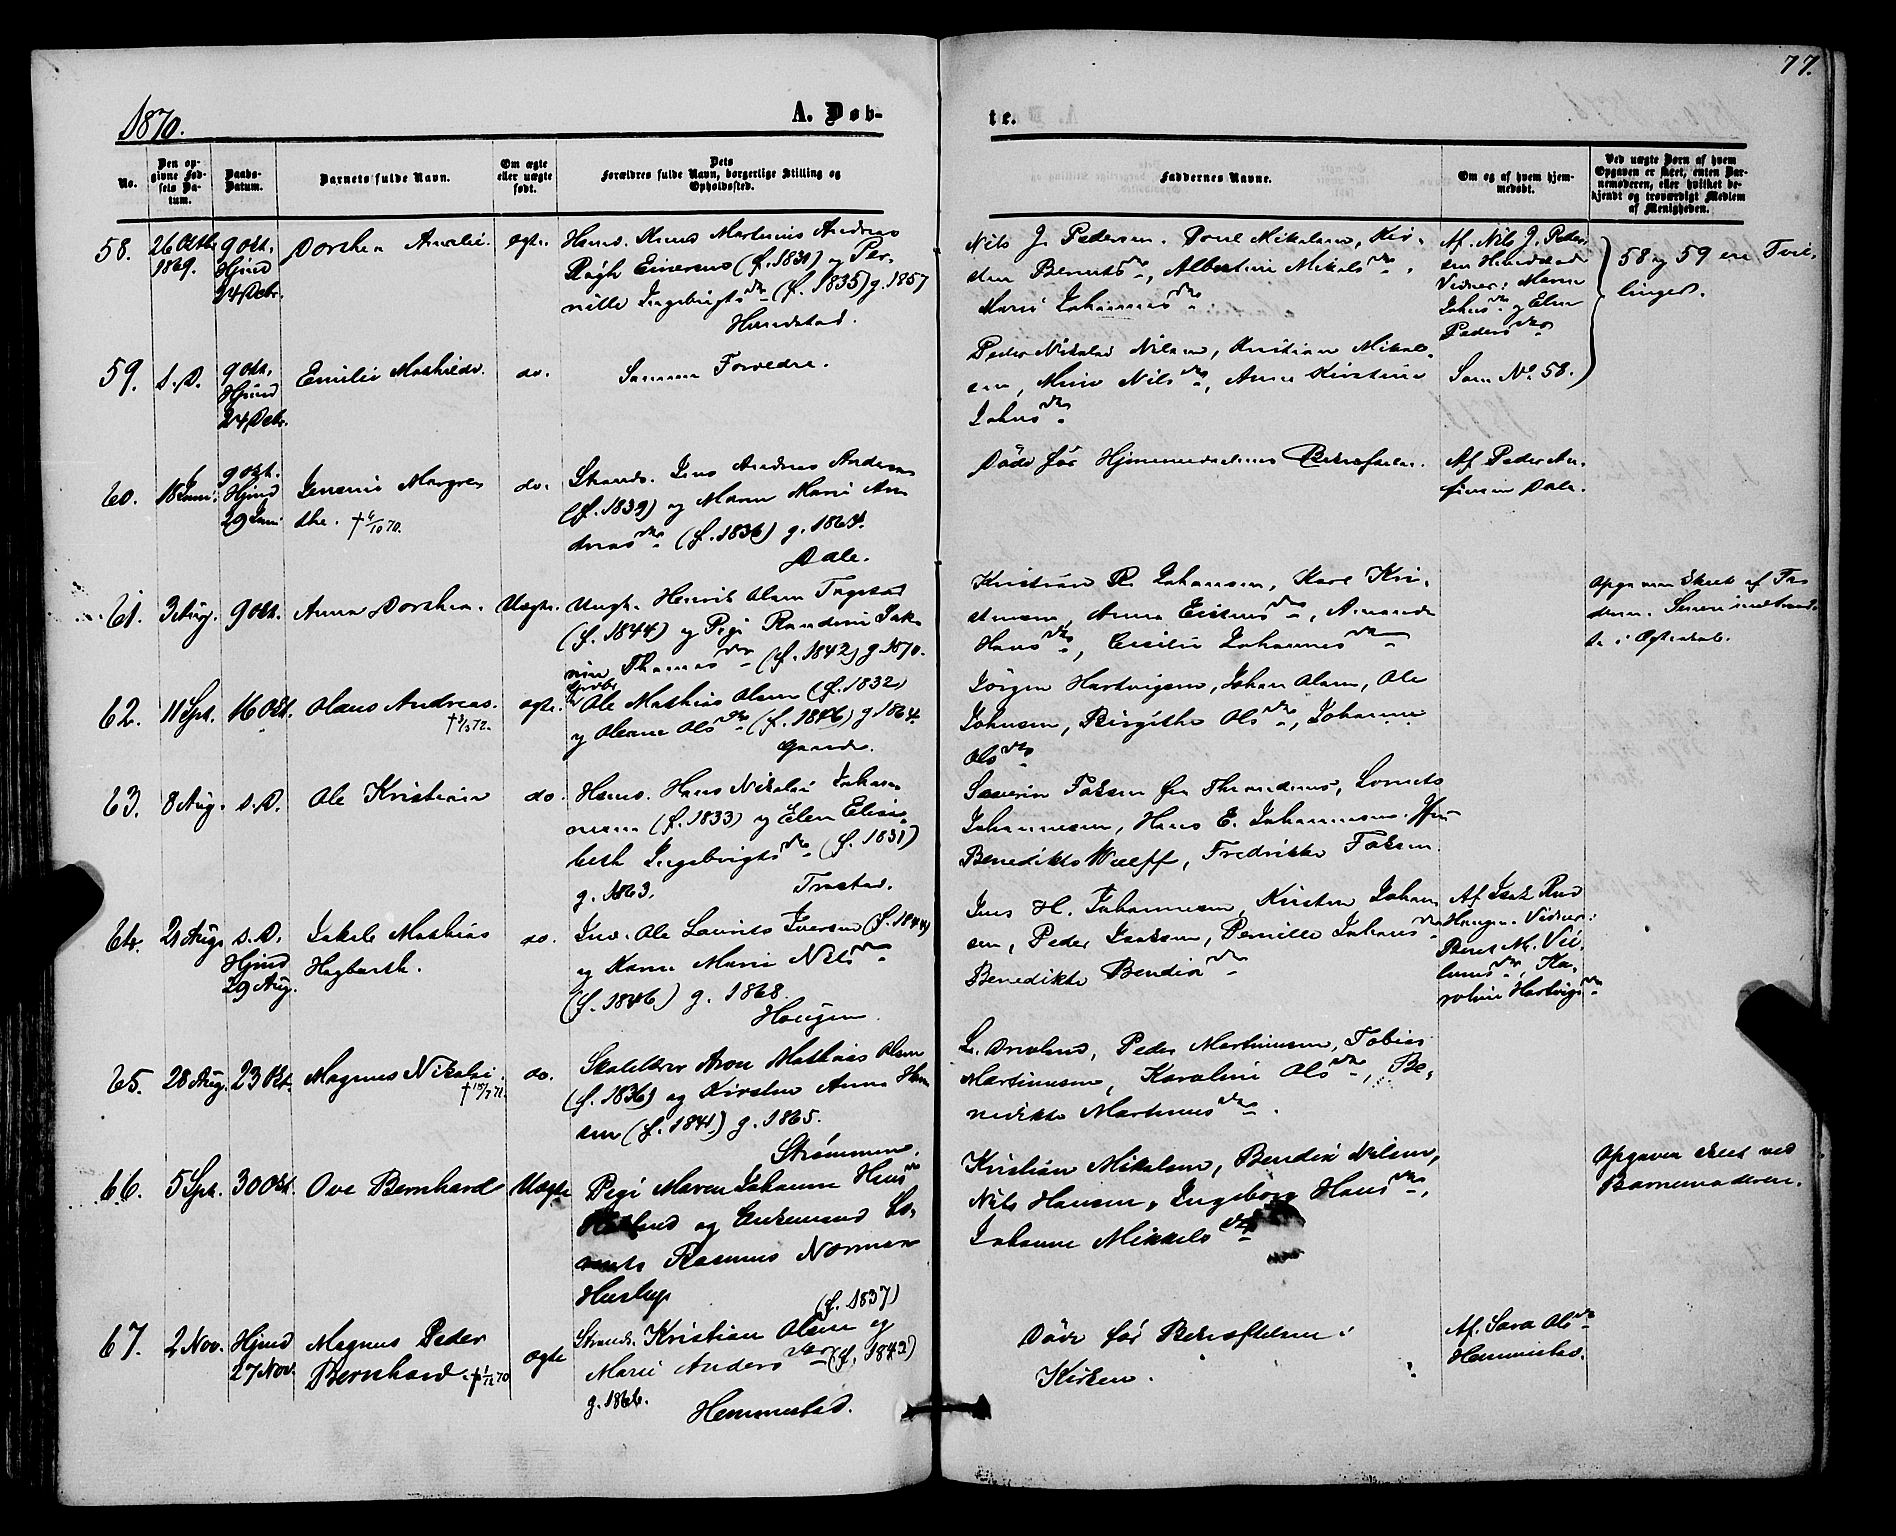 77.
1870.
A. Døb-
te.
No.
Den op-
givne Fød-
sels Da-
tum.
Daabs-
Datum.
Barnets fulde Navn.
Om ægte
eller uægte
født.
Dets
Forældres fulde Navn, borgerlige Stilling og
Opholdssted.
Faddernes Navne.
Om og af hvem hjem-
medøbt.
Ved uægte Børn af hvem
Opgaven er skeet, enten Bar-
nemoderen, eller hvilket be-
kjendt og troværdigt Medlem
af Menigheden.
58.
26 Oktbr
1869.
9 Okt.
Hjmd
24 Debr.
Dorthea Amalie.
ægte.
Huusm. Martinus Andreas
Einersen (f. 1831) og Per-
nille Ingebrigtsdtr (f. 1835) g. 1857
Nils J. Pedersen. Poul Mikalsen, Kir-
sten Berntsdtr, Albertine Mikalsdtr,
Marie Johannesdtr.
Af Nils J. Peder-
sen
Vidner: Maren
Johnsdtr og Elen
Pedersdtr
58 og 59 ere Tvil-
linger.
59.
s. D.
9 Okt.
Hjmd
24 Debr.
Emilie Mathilde.
do.
Samme Forældre.
Peder Nikolai Nilsen, Kristian Mikal-
sen, Nilsdtr, Anne Kirstine
Johnsdtr
Som No 58.
60.
18 Juni.
9 Okt.
Hjmd
29 Juni
Jensine Margre-
the. † 4/10 70.
do.
Strands. Jens Andreas Andersen
(f. 1839) og Maren Marie An-
dreasdtr (f. 1836) g. 1864.
Dale.
Døde før Hjemmedaabens Bekræftelse.
Af Peder An-
Dale.
61.
3 Aug.
9 Okt.
Anna Dorthea.
Uægte.
Ungk. Henrik Olsen Tagstad
(f. 1844) og Pige Randine Jak-
Thomasdtr (f. 1842) g. 1870.
Kristian R. Johansen, Karl Kri-
stensen, Anna Eriksdtr, Amanda
Hansdtr, Cecilie Johannesdtr
Opgaven skeet af Fa-
deren. Senere indtraad-
te i Ægteskab.
62.
11 Spt.
16 Okt.
Olaus Andreas.
ægte.
Ole Mathias Olsen (f. 1832)
og Olsdtr (f. 1846) g. 1864.
Jørgen Hartvigsen, Johan Olsen, Ole
Johnsen, Birgithe Olsdtr, Johanna
Olsdtr
63.
8 Aug.
s. D.
Ole Kristian
do.
Huusm. Hans Nikolai Johan-
nesen (f. 1833) og Elen Elisa-
beth Ingebrigtsdtr (f. 1831)
g. 1863. Trastad.
Severin Falsen fra Throndenes, Lorents
Johannesen, Hans E. Johannesen.
Benedikte Wulff, Fredrikke Falsen.
64.
21 Aug.
s. D.
Hjmd
29 Aug.
Jakob Mathias
Hagbarth.
do.
Ole Lauritz Iversen (f. 1844)
og Karen Marie Nilsdtr
(f. 1846) g. 1868.
Haugen.
Jens H. Johannesen, Kristen Johan-
sen, Peder Isaksen, Pernille Johansdtr
Benedikte Bendixdtr
Af Isak
Haugen. Vidner:
Beret M.
Ka-
roline Hartvigsdtr
65.
28 Aug.
23 Okt.
Magnus Nikolai.
do.
Mathias Olsen
(f. 1836) og Kirsten Anna Han-
sen (f. 1841) g. 1865.
Strømmen.
Peder Martinusen, Tobias
Martinusen, Karoline Olsdtr, Be-
nedikte Martinusdtr.
66.
5 Spt.
30 Okt.
Ove Bernhard
Uægte
Pige Maren Johanna Hansdtr
og Enkemand Lo-
rents Rasmus Norman
Husby
Kristian Mikalsen, Bendix Nilsen,
Nils Hansen, Ingeborg Hansdtr,
Johanne Mikkelsdtr
Opgaven skeet ved
Barnemoderen.
67.
2 Nov.
Hjmd
27 Nov.
Magnus Peder
Bernhard. † 1/12 70
ægte
(f. 1837)
Strands. Kristian Olsen og
Marie Andersdtr (f. 1842)
g. 1866.
Hemmestad.
Døde før Bekræftelsen i
Kirken.
Af Sara Olsdtr
Hemmestad.